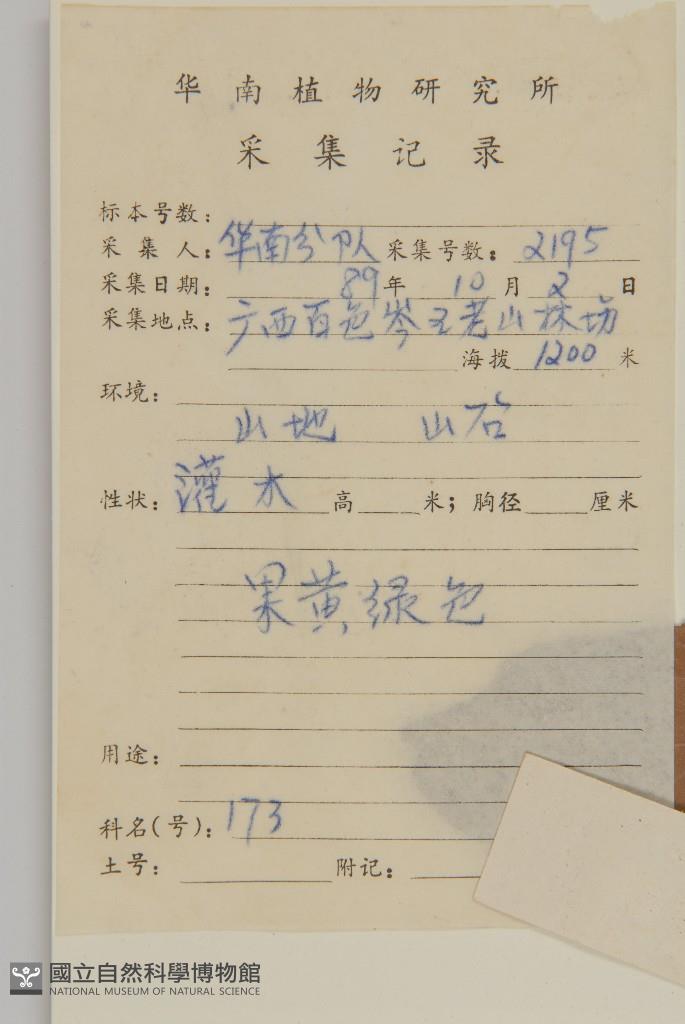 华南植物研究所
采集记录
标本号数：
采集人：华南分队 采集号数：2195
采集日期：89年10月2日
采集地点：广西百色岑王老山林场
海拨1200米
环境：
山地 山岩
性状：灌木 高 米；胸径 厘米
果黄绿色
用途：
科名(号)：173
土号： 附记：
國立自然科學博物館
NATIONAL MUSEUM OF NATURAL SCIENCE